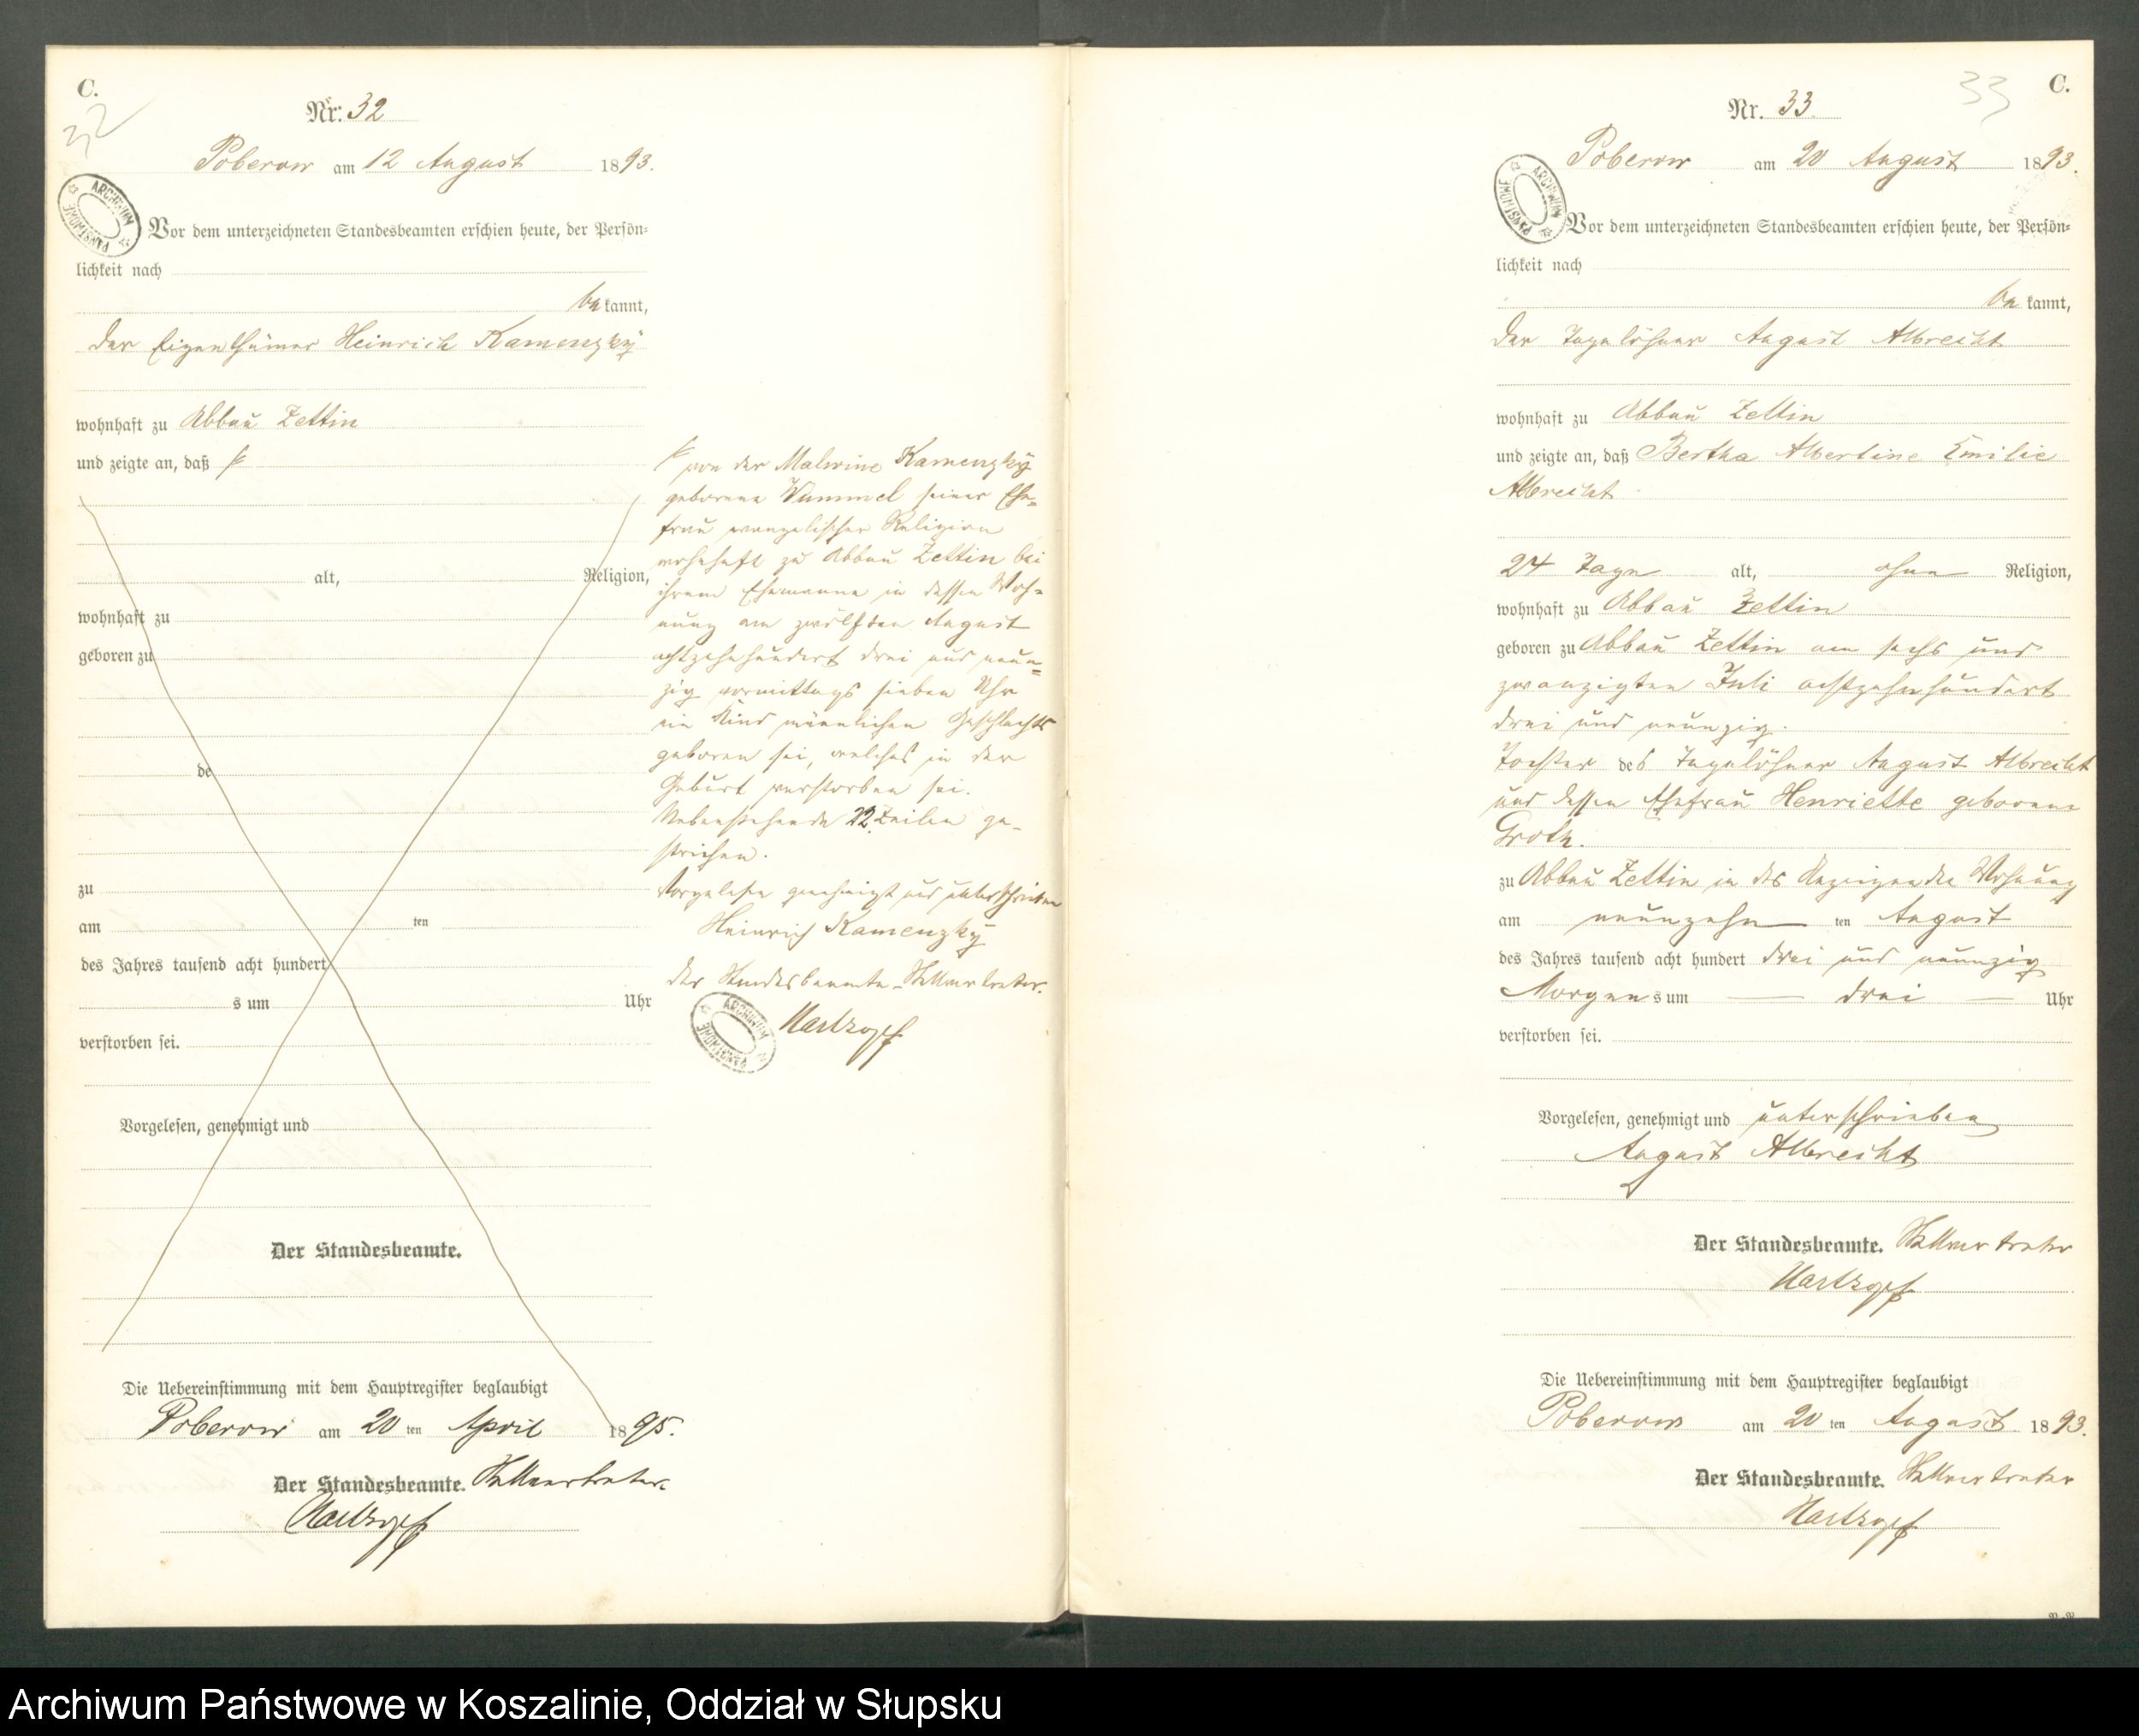 C.
32
Nr. 32
Poberow am 12 August 1893.
ARCHIWUM PAŃSTWOWE
Vor dem unterzeichneten Standesbeamten erschien heute, der Persön-
lichkeit nach
be kannt,
der Eigenthümer Heinrich Kamenzky
wohnhaft zu Abbau Zettin
und zeigte an, daß
alt, Religion,
wohnhaft zu
geboren zu
de
zu
am ten
des Jahres tausend acht hundert
s um Uhr
verstorben sei.
Vorgelesen, genehmigt und
Der Standesbeamte.
Die Uebereinstimmung mit dem Hauptregister beglaubigt
Poberow am 20 ten April 1895.
Der Standesbeamte. Stellvertreter.
Hartzopf
von der Malwine Kamenzky
geborene Wummel seiner Ehe-
frau evangelischer Religion
wohnhaft zu Abbau Zettin bei
ihrem Ehemanne in dessen Woh-
nung am zwölften August
achtzehnhundert drei und neun-
zig vormittags sieben Uhr
ein Kind männlichen Geschlechts
geboren sei, welches in der
Geburt verstorben sei.
Nebenstehende 22 Zeilen ge-
strichen.
Vorgelesen genehmigt und unterschrieben
Heinrich Kamenzky
Der Standesbeamte Stellvertreter.
Hartzopf
ARCHIWUM PAŃSTWOWE
33
C.
Nr. 33.
Poberow am 20 August 1893.
ARCHIWUM PAŃSTWOWE
Vor dem unterzeichneten Standesbeamten erschien heute, der Persön-
lichkeit nach
be kannt,
der Tagelöhner August Albrecht
wohnhaft zu Abbau Zettin
und zeigte an, daß Bertha Albertine Emilie
Albrecht
24 Tage alt, ohne Religion,
wohnhaft zu Abbau Zettin
geboren zu Abbau Zettin am sechs und
zwanzigten Juli achtzehnhundert
drei und neunzig.
Tochter des Tagelöhner August Albrecht
und dessen Ehefrau Henriette geborene
Groth.
zu Abbau Zettin in des Anzeigenden Wohnung
am neunzehn ten August
des Jahres tausend acht hundert drei und neunzig
Morgens um drei Uhr
verstorben sei.
Vorgelesen, genehmigt und unterschrieben
August Albrecht
Der Standesbeamte. Stellvertreter
Hartzopf
Die Uebereinstimmung mit dem Hauptregister beglaubigt
Poberow am 20 ten August 1893.
Der Standesbeamte. Stellvertreter
Hartzopf
Archiwum Państwowe w Koszalinie, Oddział w Słupsku